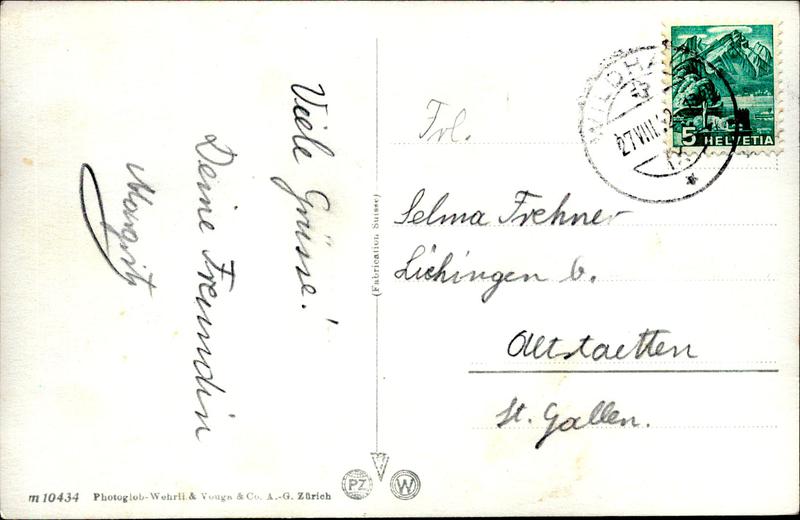 Viele Grüsse!
Deine Freundin
Margrit
Frl.
Selma Frehner
Lüchingen b.
Altstaetten
St. Gallen.
WILDHA
27.VIII.42
5 HELVETIA
(Fabrication Suisse)
m 10434 Photoglob-Wehrli & Vouga & Co. A.-G. Zürich
PZ W